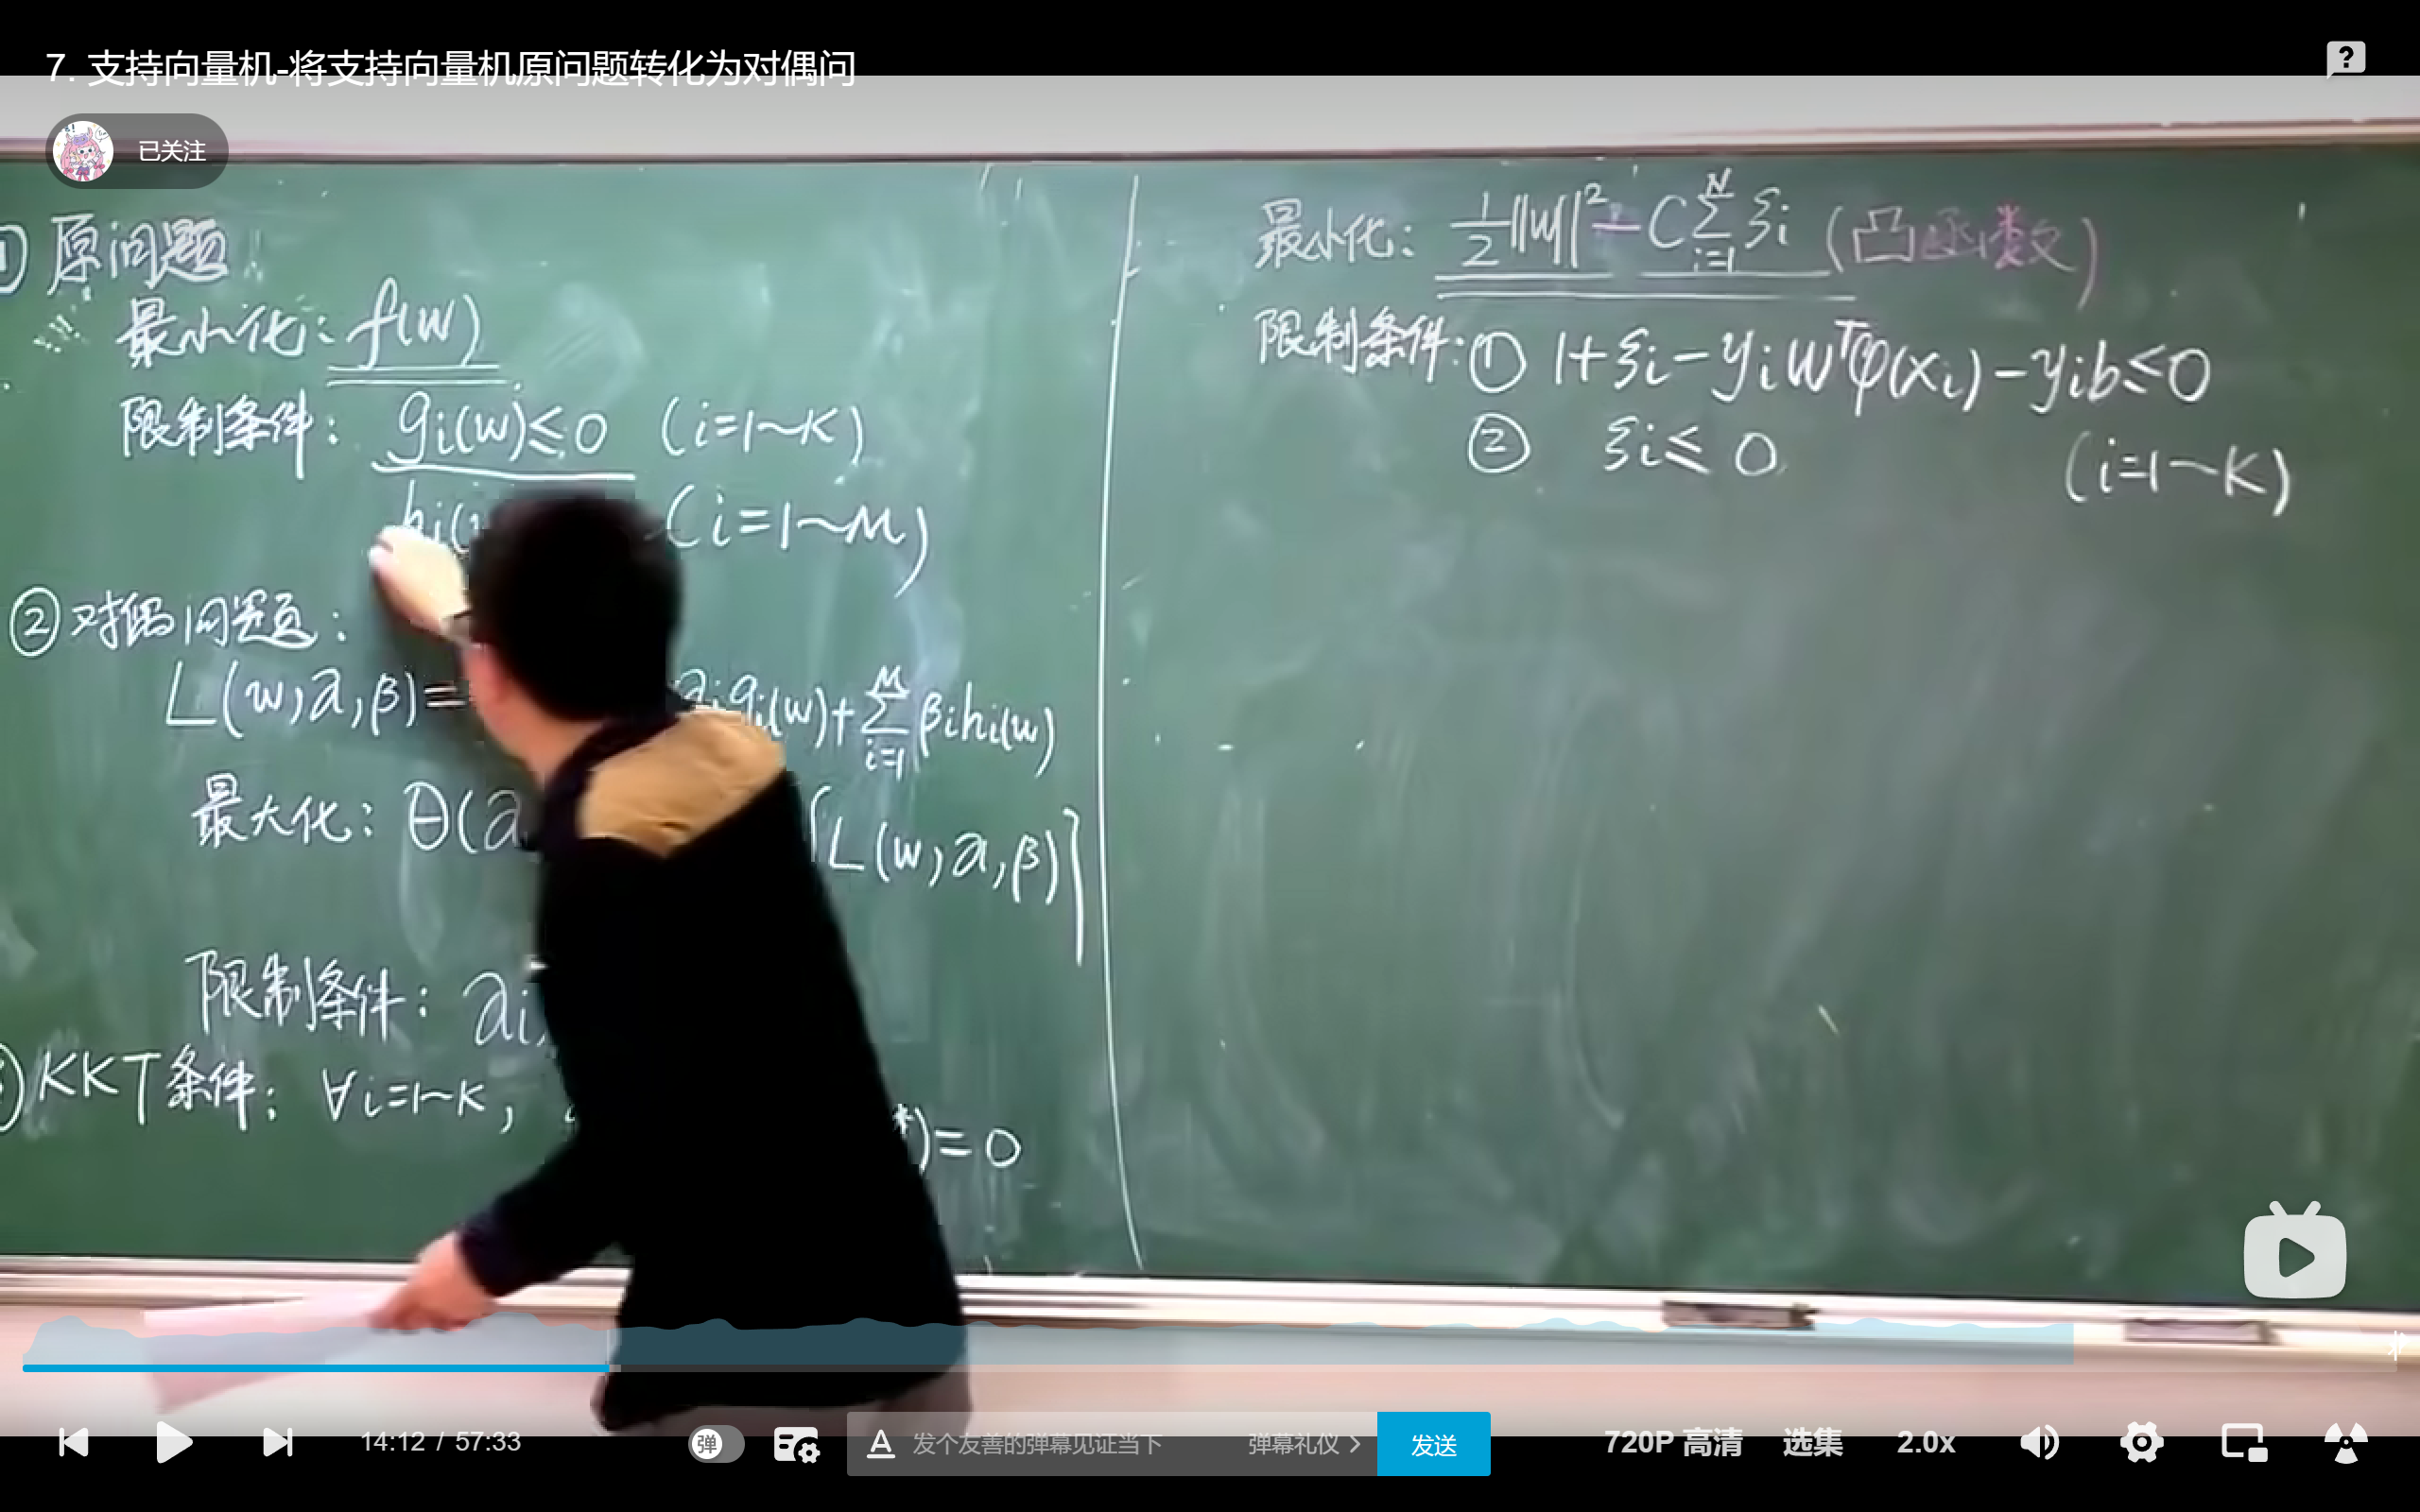 7. 支持向量机-将支持向量机原问题转化为对偶问
已关注
原问题
最小化: f(w)
限制条件: gi(w)≤0 (i=1~K)
hi( (i=1~M)
②对偶问题:
L(w,α,β)= αigi(w)+∑_{i=1}^{M}βihi(w)
最大化: θ(α L(w,α,β)]
限制条件: αi
KKT条件: ∀i=1~K, *)=0
最小化: 1/2||w||²-C∑_{i=1}^{N}ξi (凸函数)
限制条件: ① 1+ξi-yiwᵀφ(xi)-yib≤0
② ξi≤0 (i=1~K)
14:12 / 57:33
弹
发个友善的弹幕见证当下
弹幕礼仪 >
发送
720P 高清
选集
2.0x